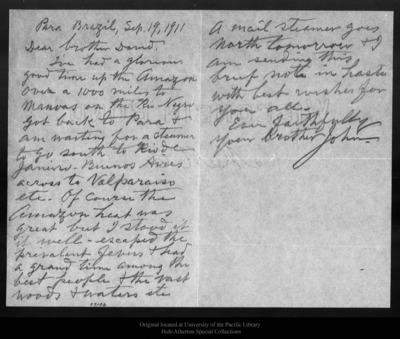 Para Brazil, Sep. 19, 1911
Dear brother David.
I've had a glorious
good time up the Amazon
Over a 1000 miles to
Manaos on the Rio Negro
Got back to Para &
am waiting for a steamer
to go south to Rio de
Janeiro - Buenos Aires
across to Valparaiso
etc. Of course the
Amazon heat was
great but I stood it
it well - escaped the
prevalent fevers & had
a grand time among the
best people & the vast
woods & waters etc
A mail steamer goes
North tomorrow & I
am sending this
brief note in haste
with best wishes for
you all.
Ever faithfully
your brother John.
Original located at University of the Pacific Library
Holt-Atherton Special Collections